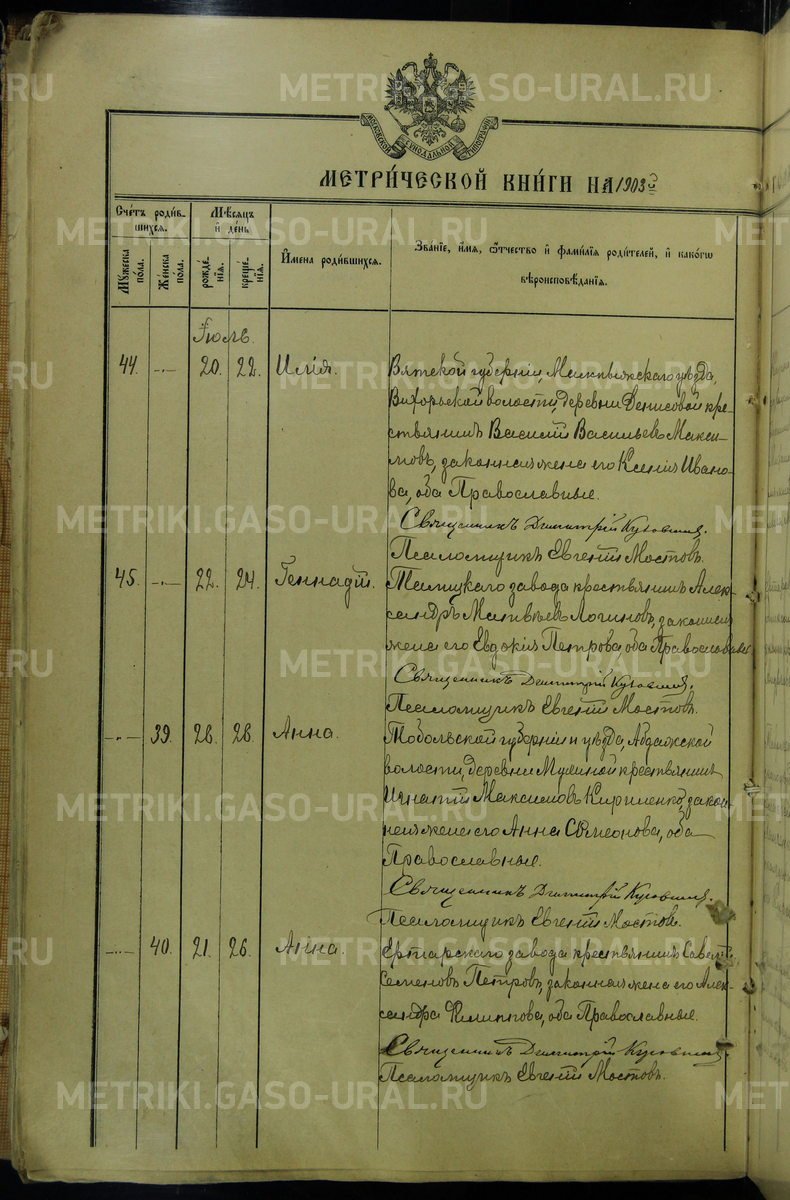 METRIKI.GASO-URAL.RU
МОСКОВСКОЙ СУНОДАЛЬНОЙ ТИПОГРАФІИ
МЕТРИ́ЧЕСКОЙ КНИ́ГИ НА 1903
Сче́тъ роди́в-
шихся.
Мѣ́сяцъ
и҆ де́нь
Мꙋ́жеска по́ла.
Же́нска по́ла.
рожде́-
нїѧ.
креще́-
нїѧ.
И҆мена роди́вшихся.
Зва́нїе, и҆́мя, ѻ҆́тчество и҆ фами́лїя роди́телей, и҆ како́гѡ
вѣроисповѣ́данїя.
Іюль.
44. 20. 22. Илія. Вятской губерніи, Малмыжскаго уѣзда,
волости, деревни Денисовой кре-
стьянинъ Василій Васильевъ Макси-
мовъ, законная жена его Ксенія Ивано-
ва, оба Православные.
Священникъ Димитрій
Псаломщикъ Евгеній Мостовъ.
45. 22. 24. Геннадій. Талицкаго завода крестьянинъ Алек-
сандръ Матвѣевъ Логиновъ, законная
жена его Евдокія Петрова, оба Православные
Священникъ Димитрій
Псаломщикъ Евгеній Мостовъ.
39. 26. 28. Анна. Тобольской губерніи и уѣзда,
волости, деревни крестьянинъ
Игнатій Максимовъ Кириленко, закон-
ная жена его Анна Сѵмеонова, оба
Православные.
Священникъ Димитрій
Псаломщикъ Евгеній Мостовъ.
40. 21. 26. Анна. Ертарскаго завода крестьянинъ
Семеновъ Петровъ, законная жена его Алек-
сандра Филиппова, оба Православные.
Священникъ Димитрій
Псаломщикъ Евгеній Мостовъ.